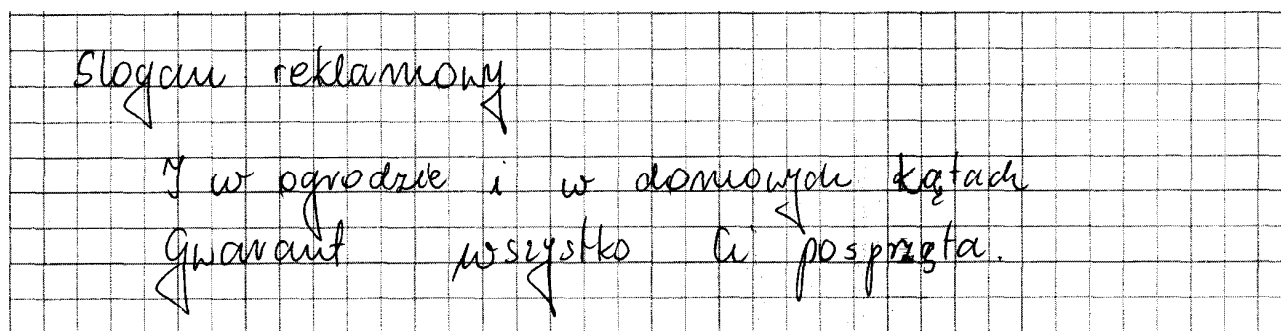 Slogan reklamowy
I w ogrodzie i w domowych kątach
Gwarant wszystko Ci posprzęta.